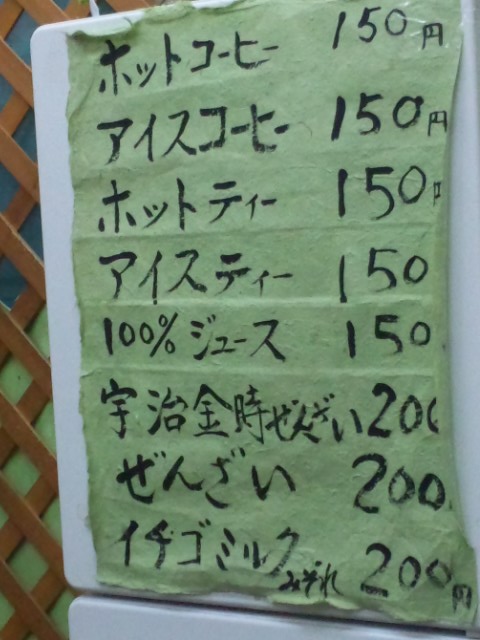 ホットコーヒー 150円
アイスコーヒー 150円
ホットティー 150円
アイスティー 150
100%ジュース 150
宇治金時ぜんざい 200
ぜんざい 200
イチゴミルクみぞれ 200円